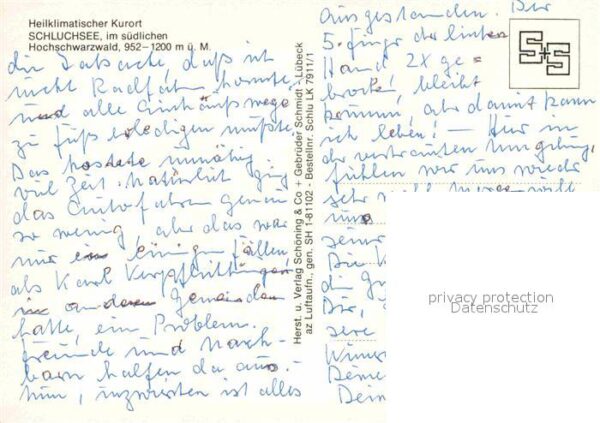 Heilklimatischer Kurort
SCHLUCHSEE, im südlichen
Hochschwarzwald, 952–1200 m ü. M.
die Tatsache, daß ich
nicht Radfahren konnte
und alle Einkaufswege
zu Fuß erledigen mußte.
Das kostete unnötig
viel Zeit. Natürlich ging
das Autofahren genau
so wenig, aber das war
nur in einigen Fällen,
als Karl Verpflichtungen
in anderen Gemeinden
hatte, ein Problem.
Freunde und Nach-
barn halfen da aus. –
Nun, inzwischen ist alles
Herst. u. Verlag Schöning & Co + Gebrüder Schmidt · Lübeck
az Luftaufn., gen. SH 1-81102 - Bestellnr. Schlu LK 7911/1
S+S
ausgestanden. Der
5. Finger der linken
Hand, 2X ge-
brochen, bleibt
krumm, aber damit kann
ich leben! – Hier in
der vertrauten Umgebung,
fühlen wir uns wieder
sehr
uns
seine
Die
die
Dir,
sere
Deine
Dein
privacy protection
Datenschutz